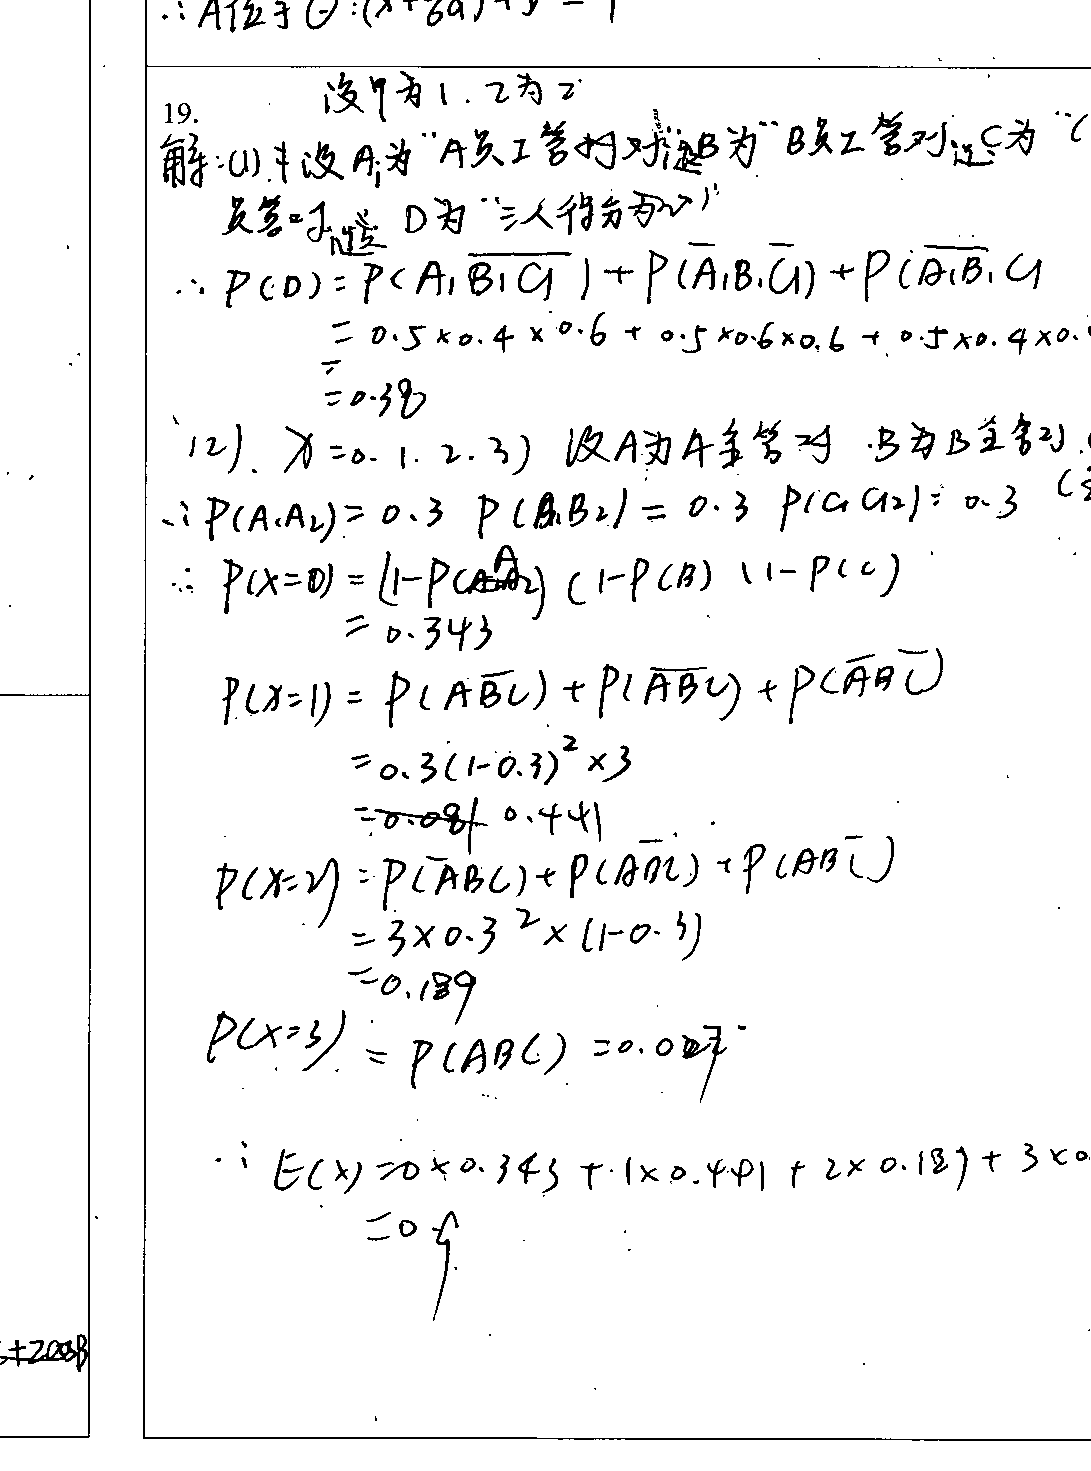 ∴A位于⊙:(x+
19.
设甲为1.乙为2
解:(1)设A₁为“A员工答对”B为“B员工答对”C为“C
D为“三人得分为
∴P(D)=P(A₁\overline{B₁C₁})+P(\overline{A}₁B₁\overline{C}₁)+P(\overline{A₁B₁}C₁
=0.5×0.4×0.6+0.5×0.6×0.6+0.5×0.4×0.
=
=0.38
(2). X=0.1.2.3) 设A为A答对.B为B答对
∴P(A₁A₂)=0.3 P(B₁B₂)=0.3 P(C₁C₂)=0.3
∴P(X=0)=(1-P(A))(1-P(B)(1-P(C)
=0.343
P(X=1)=P(A\overline{BC})+P(\overline{AB}C)+P(\overline{A}B\overline{C})
=0.3(1-0.3)²×3
=0.081 0.441
P(X=2)=P(\overline{A}BC)+P(A\overline{B}C)+P(AB\overline{C})
=3×0.3²×(1-0.3)
=0.189
P(X=3)=P(ABC)=0.027
∴E(X)=0×0.343+1×0.441+2×0.189+3×0.
=0.9